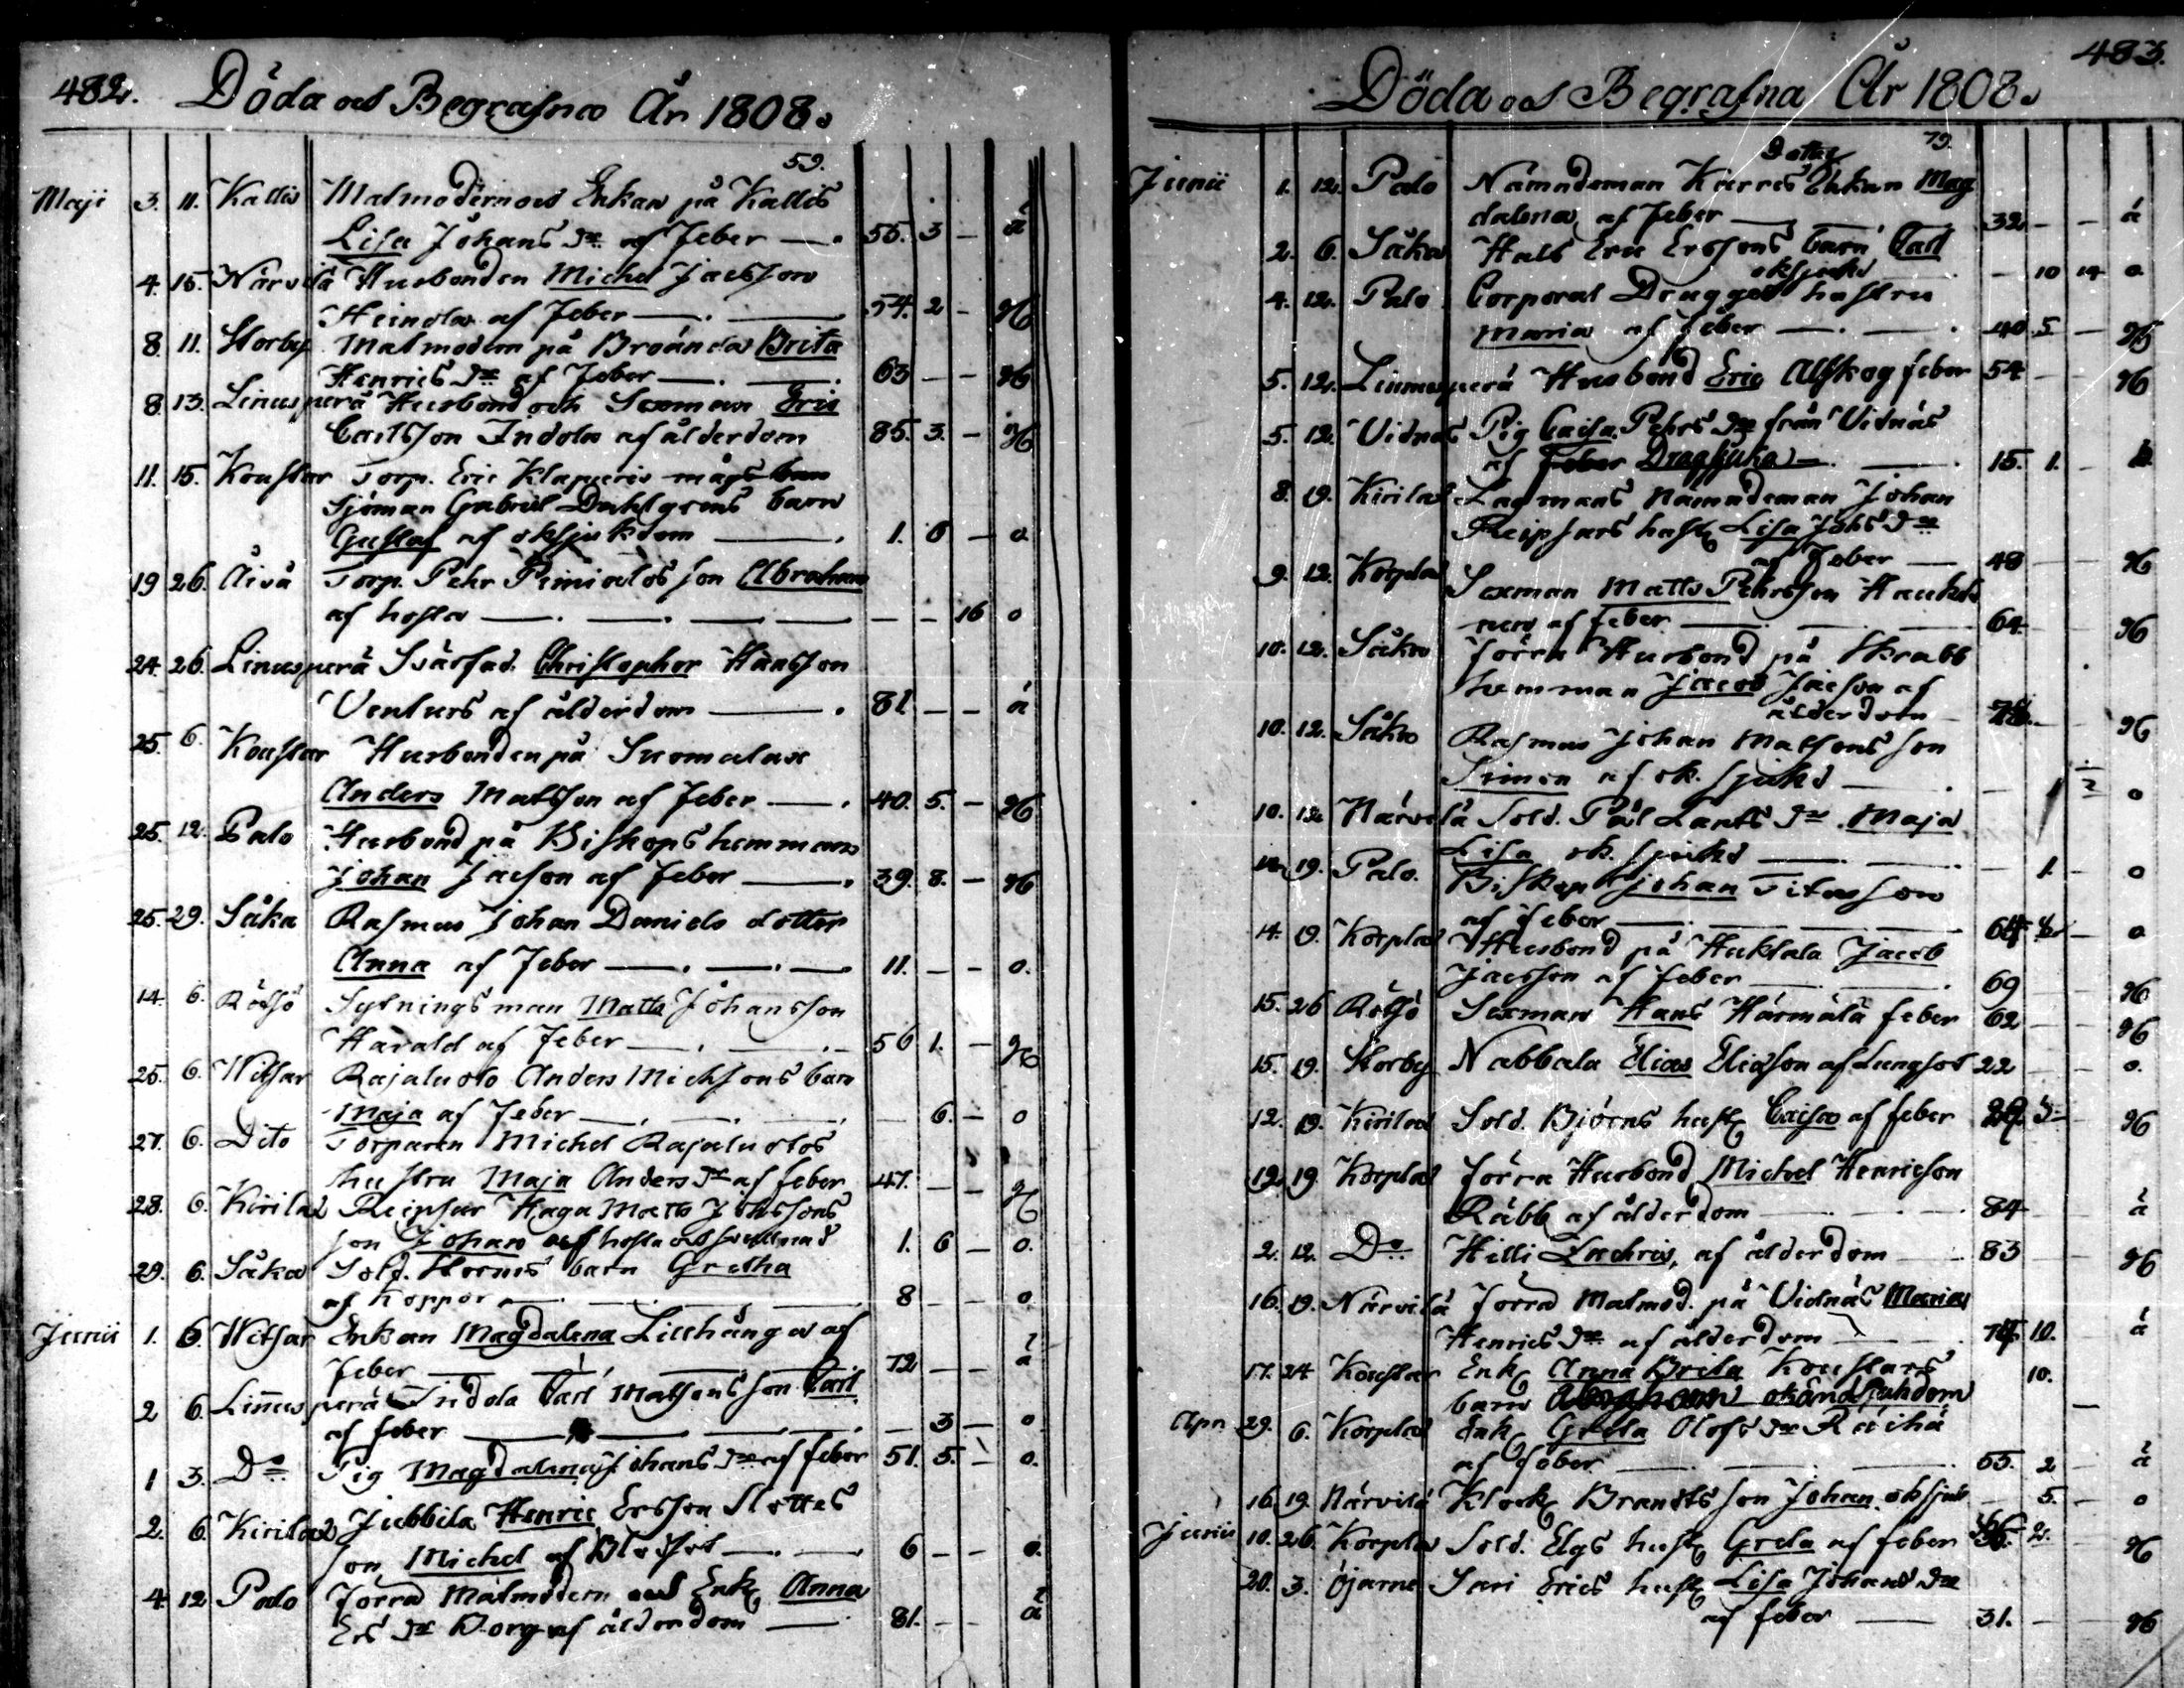 482. Döda och Begrafna År 1808.
59.
Maji 3. 11. Kallis Matmodernoch Enkan på Kallis
Lisa Johans dr af Feber 55. 3 - ä
4. 15. Närvilä Husbonden Michel Jacsson
Heinola af Feber 54. 2 - g6
8 11. Storby Matmodern på Broända Brita
Henrics dr af Feber 63 - - g6
8 13. Linusperä Husbond och Sexman Eric
Carlsson Indola af ålderdom 85. 3. - g6
11. 15. Koustar Torp. Eric Klapuris mågs barn
Sjöman Gabriel Dahlgrens barn
Gustaf af oksjukdom 1. 6 - o
19 26. Åivå Torp. Pehr Peiniolos son Abraham
af hosta - - 16 o
24. 26. Linusperä Svärfad. Christopher Hansson
Venturs af ålderdom 81 - - ä
25. 6. Koustar Husbonden på Suomalax
Anders Matsson af Feber 40. 5. - g6
25. 12. Palo Husbond på Biskops hemman
Johan Jacson af Feber 39. 8. - g6
25. 29. Såka Rasmus Johan Daniels dotter
Anna af Feber 11. - - o.
14. 6. Rötsö Sytningsman Matts Johansson
Harald af Feber 56 1. - g6
25. 6. Witsar Rajaluoto Anders Michsons barn
Maja af Feber 6. - o
27. 6. Dito Torparen Michel Rajaluotos
hustru Maja Anders dr af feber 47. - - g6
28. 6. Kirilax Reipsar Haga Matts Johssons
son Johan af hosta och svullnad 1. 6 - o.
29. 6. Såka Sold. Storms barn Gretha
af Koppor 8 - - o
Junii 1. 6 Witsar Enkan Magdalena Lillhånga af
Feber 72 - - ä
2 6. Linnusperä Indola Carl Matssons son Carl
af feber - 3 - o
1 3. Do Pig Magdalena Johans dr af feber 51. 5. - o.
2. 6. Kirilax Jubbila Henric Ersson Slottes
son Michel af Blodsot 6 - - o.
4. 12 Palo Förra Matmodern och Enk Anna
Ers dr Borg af ålderdom 81. - - ä
483.
Döda och Begrafna År 1808.
79.
Dotter
Junii 1. 12. Palo Nämndeman Kurres Enkan Mag
dalena af Feber 32 - - ä
2. 6. Såka Hals Eric Erssons barn Carl
oksjukd - 10 14 o.
4. 12. Palo Corporal Draggs hustru
Maria af Feber 40 5 - g6
5. 12. Linnusperä Husbond Eric Alskog feber 54 - g6
5. 12. Vidnäs Pig Caisa Pehrs dr från Vidnäs
af Feber Dragsjuka 15. 1. -
8. 19. Kirilax Lagmans Nämndeman Johan
Reipsars hust Lisa Johs dr
af Feber 48 - g6
9. 12. Korplax Sexman Matts Pehrsson Hauki
nen af feber 64 g6
10. 12. Såka Förra Husbond på Skrabb
hemman Jacob Jacson af
ålderdom g6
10. 12. Såka Rasmus Johan Matssons son
Simon af ok. sjukd - o
10. 12 Närvilä Sold. Pål Lants dr Maja
Lisa ok. sjukd - 1. - o
19. Palo. Biskop Johan Titusson
af feber - o
14. 19. Korplax Husbond på Huktala Jacob
Jacsson af feber 69 g6
15. 26 Rötsö Sexman Hans Härmälä feber 62 - - g6
15. 19. Storby Nabbala Elias Eliasson af Lungsot 22 - - o.
12. 19. Kirilax Sold. Björns hust Caisa af feber g6
12 19 Korplax förra Husbond Michel Henricson
Räbb af ålderdom 84 ä
2. 12. Do Hilli Zachris, af ålderdom 83 g6
16. 19. Närvilä förra Matmod. på Vidnäs Maria
Henrics dr af ålderdom 10. ä
17. 24 Koustar Enk Anna Brita Koustars 10.
barn okänd sjukdom -
Apr. 29. 6. Korplax Enk Greta Olofs dr Räihä
af feber 55. 2 ä
16. 19. Närvilä Klock Brandts son Johan oksjuk 5. o
Junii 10. 26. Korplax Sold. Elgs hust Greta af feber 2. g6
20. 3. Öjarne Sari Erics hust Lisa Johans dr
af feber 31. g6